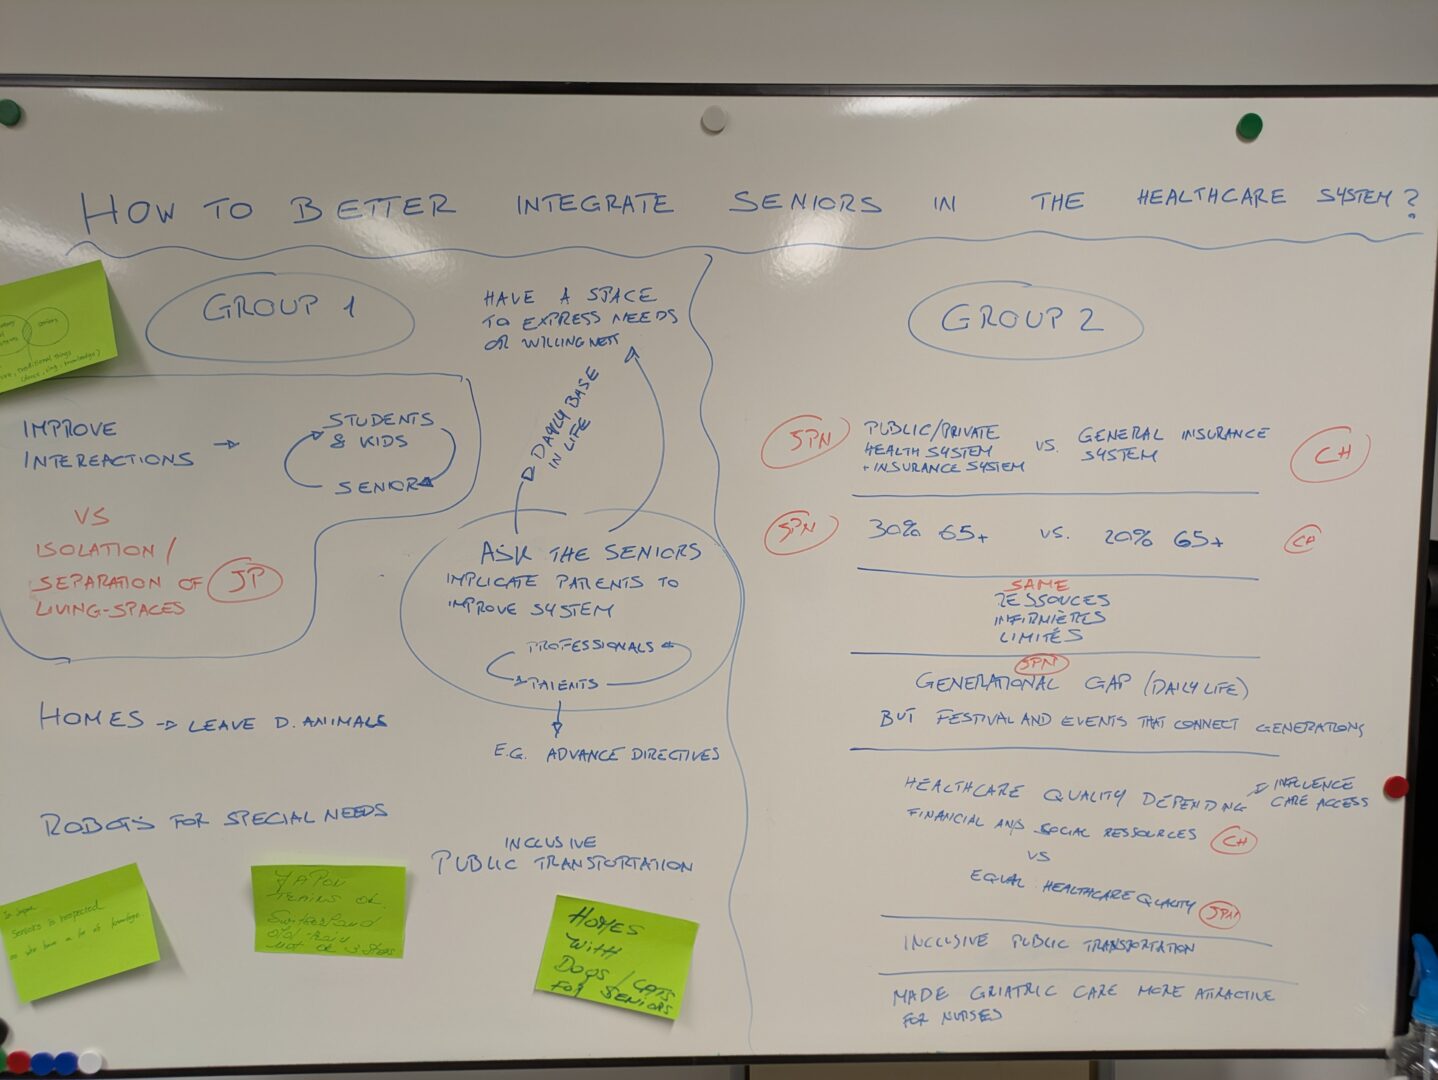 HOW TO BETTER INTEGRATE SENIORS IN THE HEALTHCARE SYSTEM?
GROUP 1
IMPROVE
INTEREACTIONS
STUDENTS
& KIDS
SENIOR
VS
ISOLATION /
SEPARATION OF JP
LIVING-SPACES
HAVE A SPACE
TO EXPRESS NEEDS
OR
DAYLY BASE
IN LIFE
ASK THE SENIORS
IMPLICATE PATIENTS TO
IMPROVE SYSTEM
PROFESSIONALS
PATIENTS
E.G. ADVANCE DIRECTIVES
HOMES → LEAVE D. ANIMALS
ROBOTS FOR SPECIAL NEEDS
INCLUSIVE
PUBLIC TRANSPORTATION
In Japan
Seniors is respected
who have a lot of knowledge
JAPON
TRAINS OK
Switzerland
old train
not ok 3 steps
HOMES
WITH
DOGS / CATS
FOR SENIORS
GROUP 2
JPN
PUBLIC/PRIVATE
HEALTH SYSTEM
+ INSURANCE SYSTEM
VS.
GENERAL INSURANCE
SYSTEM
CH
JPN 30% 65+ VS. 20% 65+ CH
SAME
RESSOUCES
INFIRMIÈRES
LIMITÉS
JPN
GENERATIONAL GAP (DAILY LIFE)
BUT FESTIVAL AND EVENTS THAT CONNECT GENERATIONS
HEALTHCARE QUALITY DEPENDING
INFLUENCE
CARE ACCESS
FINANCIAL AND SOCIAL RESSOURCES CH
VS
EQUAL HEALTHCARE QUALITY JPN
INCLUSIVE PUBLIC TRANSPORTATION
MADE GRIATRIC CARE MORE ATTRACTIVE
FOR NURSES